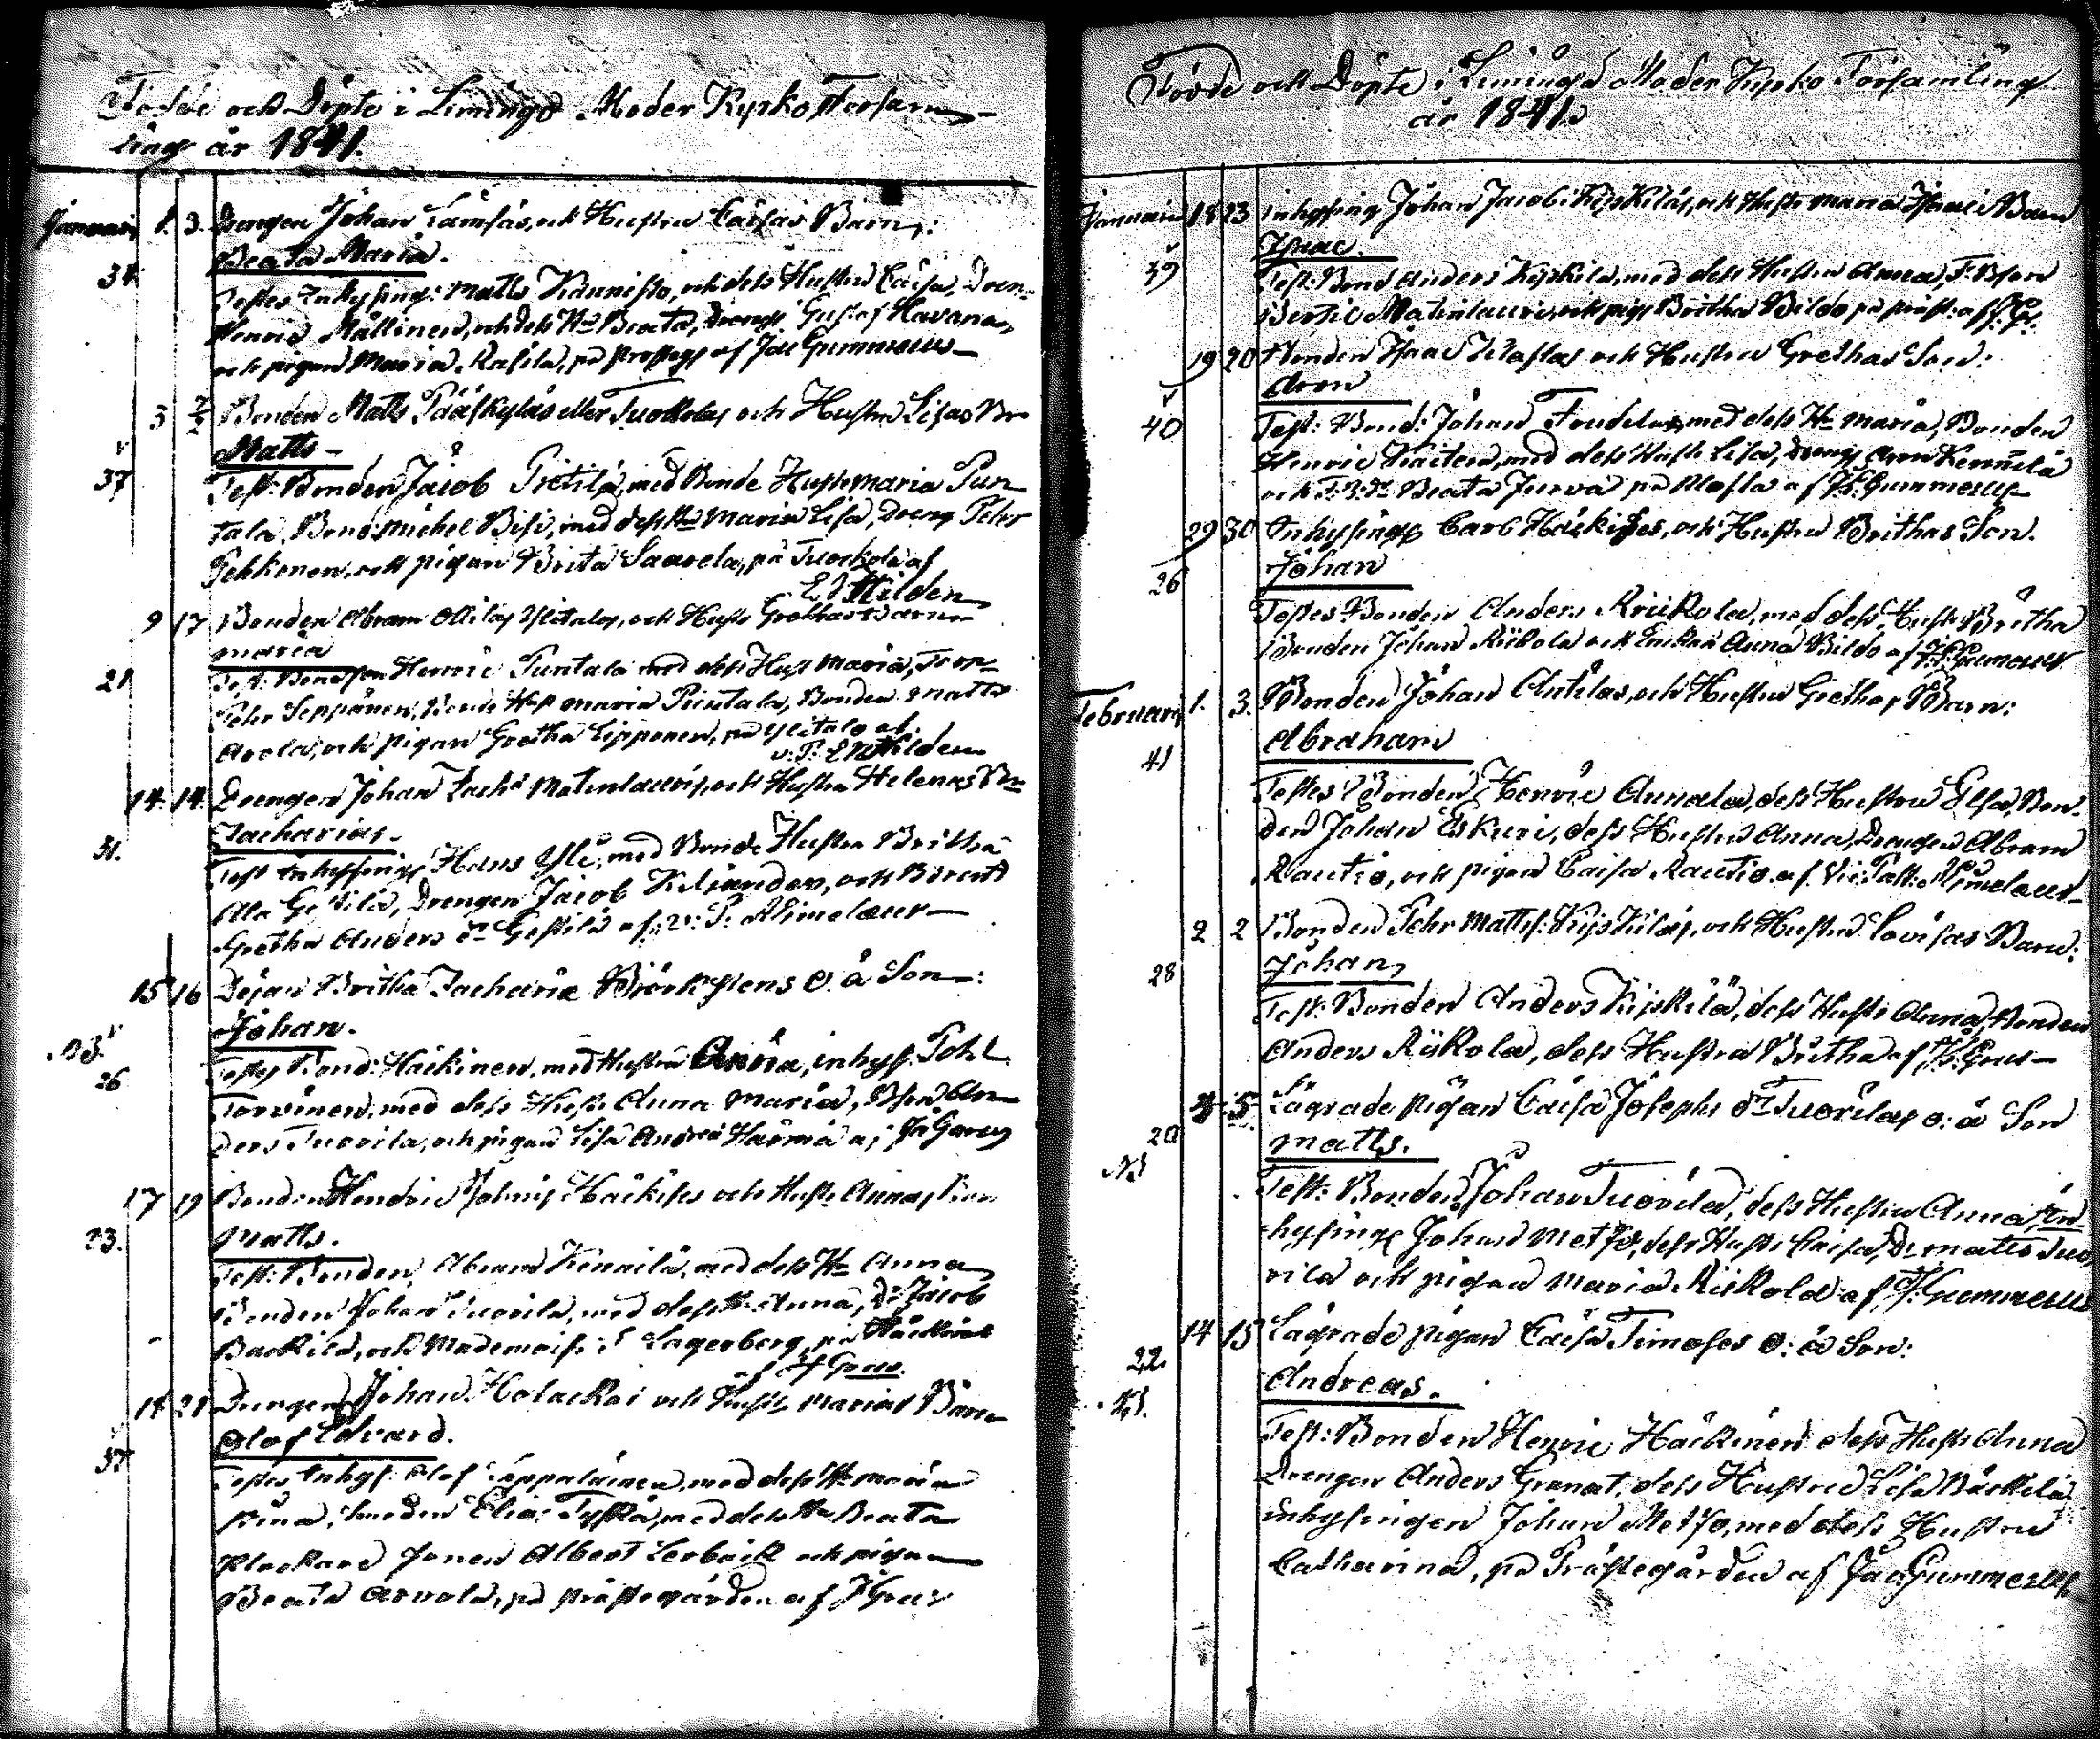 Födde och Döpte i Limingo Moder Kyrko Försam-
ling år 1841.
Januarii 1. 3. Drengen Johan Lämsäs, och Hustru Caisas Barn:
Beata Maria.
34
Testes Inhysing: Matts Kännistö, och dess Hustru Caisa, Dren-
Henric Mällinen, och dess Hu Beata, Drengs Gustaf Havana,
och pigan Maria Rasila, på prosteg: af Jac Gummerus
3 Bonden Matts Pääskyläs eller Tuokolas och Hustru Lisas Bn
Matts -
37
Test: Bonden Jacob Pietilä, med Bonde Hust: Maria Pun
tala, Bond: Michel Bisi, med dess Hu Maria Lisa, Dreng Pehr
Pekkonen, och pigan Brita Saarela, på Tuokola af
E W Hilden
9 17 Bonden Abram Ollilas Ylitalos, och Hustr Grethas Barn
Maria
21
Test: Bondeson Henric Puntala med dess Hust Maria,
Pehr Seppänen, Bonde Hust Maria Puntala, Bonden Matts
Arola, och pigan Gretha Lipponen, på Ylitalo af
v: P: E W Hilden
14. 14. Drengen Johan Zachs Matinlauris, och Hustru Helenas Bn
Zacharias.
31.
Test Inhysings Hans Yli, med Bonde Hustru Britha
Ala Gestilä, Drengen Jacob Kiljander, och
Gretha Anders dr Gestilä af v: P: Alimelæus
15 16 Dejan Britha Zachariæ Björkstens o: ä Son:
Johan.
N3.
26
Testes Bond: Häkinen, med Hustru Anna, inhys: Johl
Torvinen, med dess Hustr Anna Maria, An
ders Tuovila, och pigan Lisa Andreæ Härmä af Ja Gerus
17 19 Bonden Hendric Johans Häkises och Hustr Annas Son
Matts.
23.
Test: Bonden Abram Kennilä, med dess Hu Anna
Bonden Johan Tuovila, med dess Hu Anna, Dr: Jacob
Backila, och Mademois: Lagerberg, på Häckinen
af J Grus.
18 21 Drengen Johan Holackoi och Hustr Marias Barn
Olof Edvard.
37
Testes Inhys: Olof Leppäläinen, med dess Hu Maria
Stina, Smeden Elias Tyskä, med dess Hu Beata
Klockare Sonen Albert Lerbäck och pigan
Beata Arvola, på prästegården af J Grus
Födde och Döpte i Limingo Moder Kyrko Församling
år 1841.
Januarii 18 23 Inhysing Johan Jacobi Kyskiläs, och Hustr Maria Isaci Barn
Isaac.
39
Test: Bond Anders Kyskilä, med dess Hustru Anna,
Bertil Matinlauri, och pig: Britha Bildo på präst: af J: G:
19 20 Bonden Isaac Klaslas och Hustru Grethas Son:
Aron
40
Test: Bond: Johan Fondelas, med dess Hu Maria, Bonden
Henric Kaitera, med dess Hust: Lisa, Drengs Aron Kennilä
och B: Dr Beata Jurva på Klosla af Js: Gummerus
29 30 Inhysings Carl Häkises, och Hustru Brithas Son.
Johan
26
Testes Bonden Anders Riikola, med dess Hustr Britha
Bonden Johan Riikola och Enkan Anna Bildo af J: Gummerus
Februarii 1. 3. Bonden Johan Anttilas, och Hustru Grethas Barn:
Abraham
41
Testes Bonden Henric Annala, dess Hustru Elsa, Bon-
den Johan Eskuri, dess Hustru Anna, Drengen Abram
Rautio, och pigan Caisa Rautio. af Vic: Past: Alimelæus
2 2 Bonden Pehr Matts: Kyskiläs, och Hustru Lovisas Barn:
Johan,
28
Test: Bonden Anders Kyskilä, dess Hustr Anna, Bonden
Anders Riikola, dess Hustru Britha af Js: Grus
3 5 Lägrade pigan Caisa Josephs dr Tuovilas o: ä Son
Matts.
20
N1
Test: Bonden Johan Tuovila, dess Hustru Anna, In
hysing Johan Metso, dess Hustr Caisa, Dr Matts Tuo
vila och pigan Maria Riikola af J: Gummerus
14 15 Lägrade pigan Caisa Timoses o: ä Son:
Andreas.
22.
N1.
Test: Bonden Henric Häkinen dess Hustr Anna
Drengen Anders Granat, dess Hustru Lisa Backila
inhysingen Johan Metso, med dess Hustru
Catharina, på Prästegården af Jac Gummerus